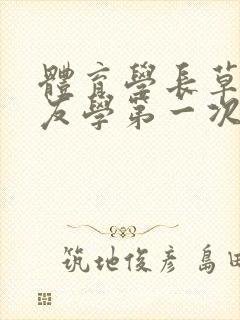 體育學長草
友學第一次
筑地俊彥 島田